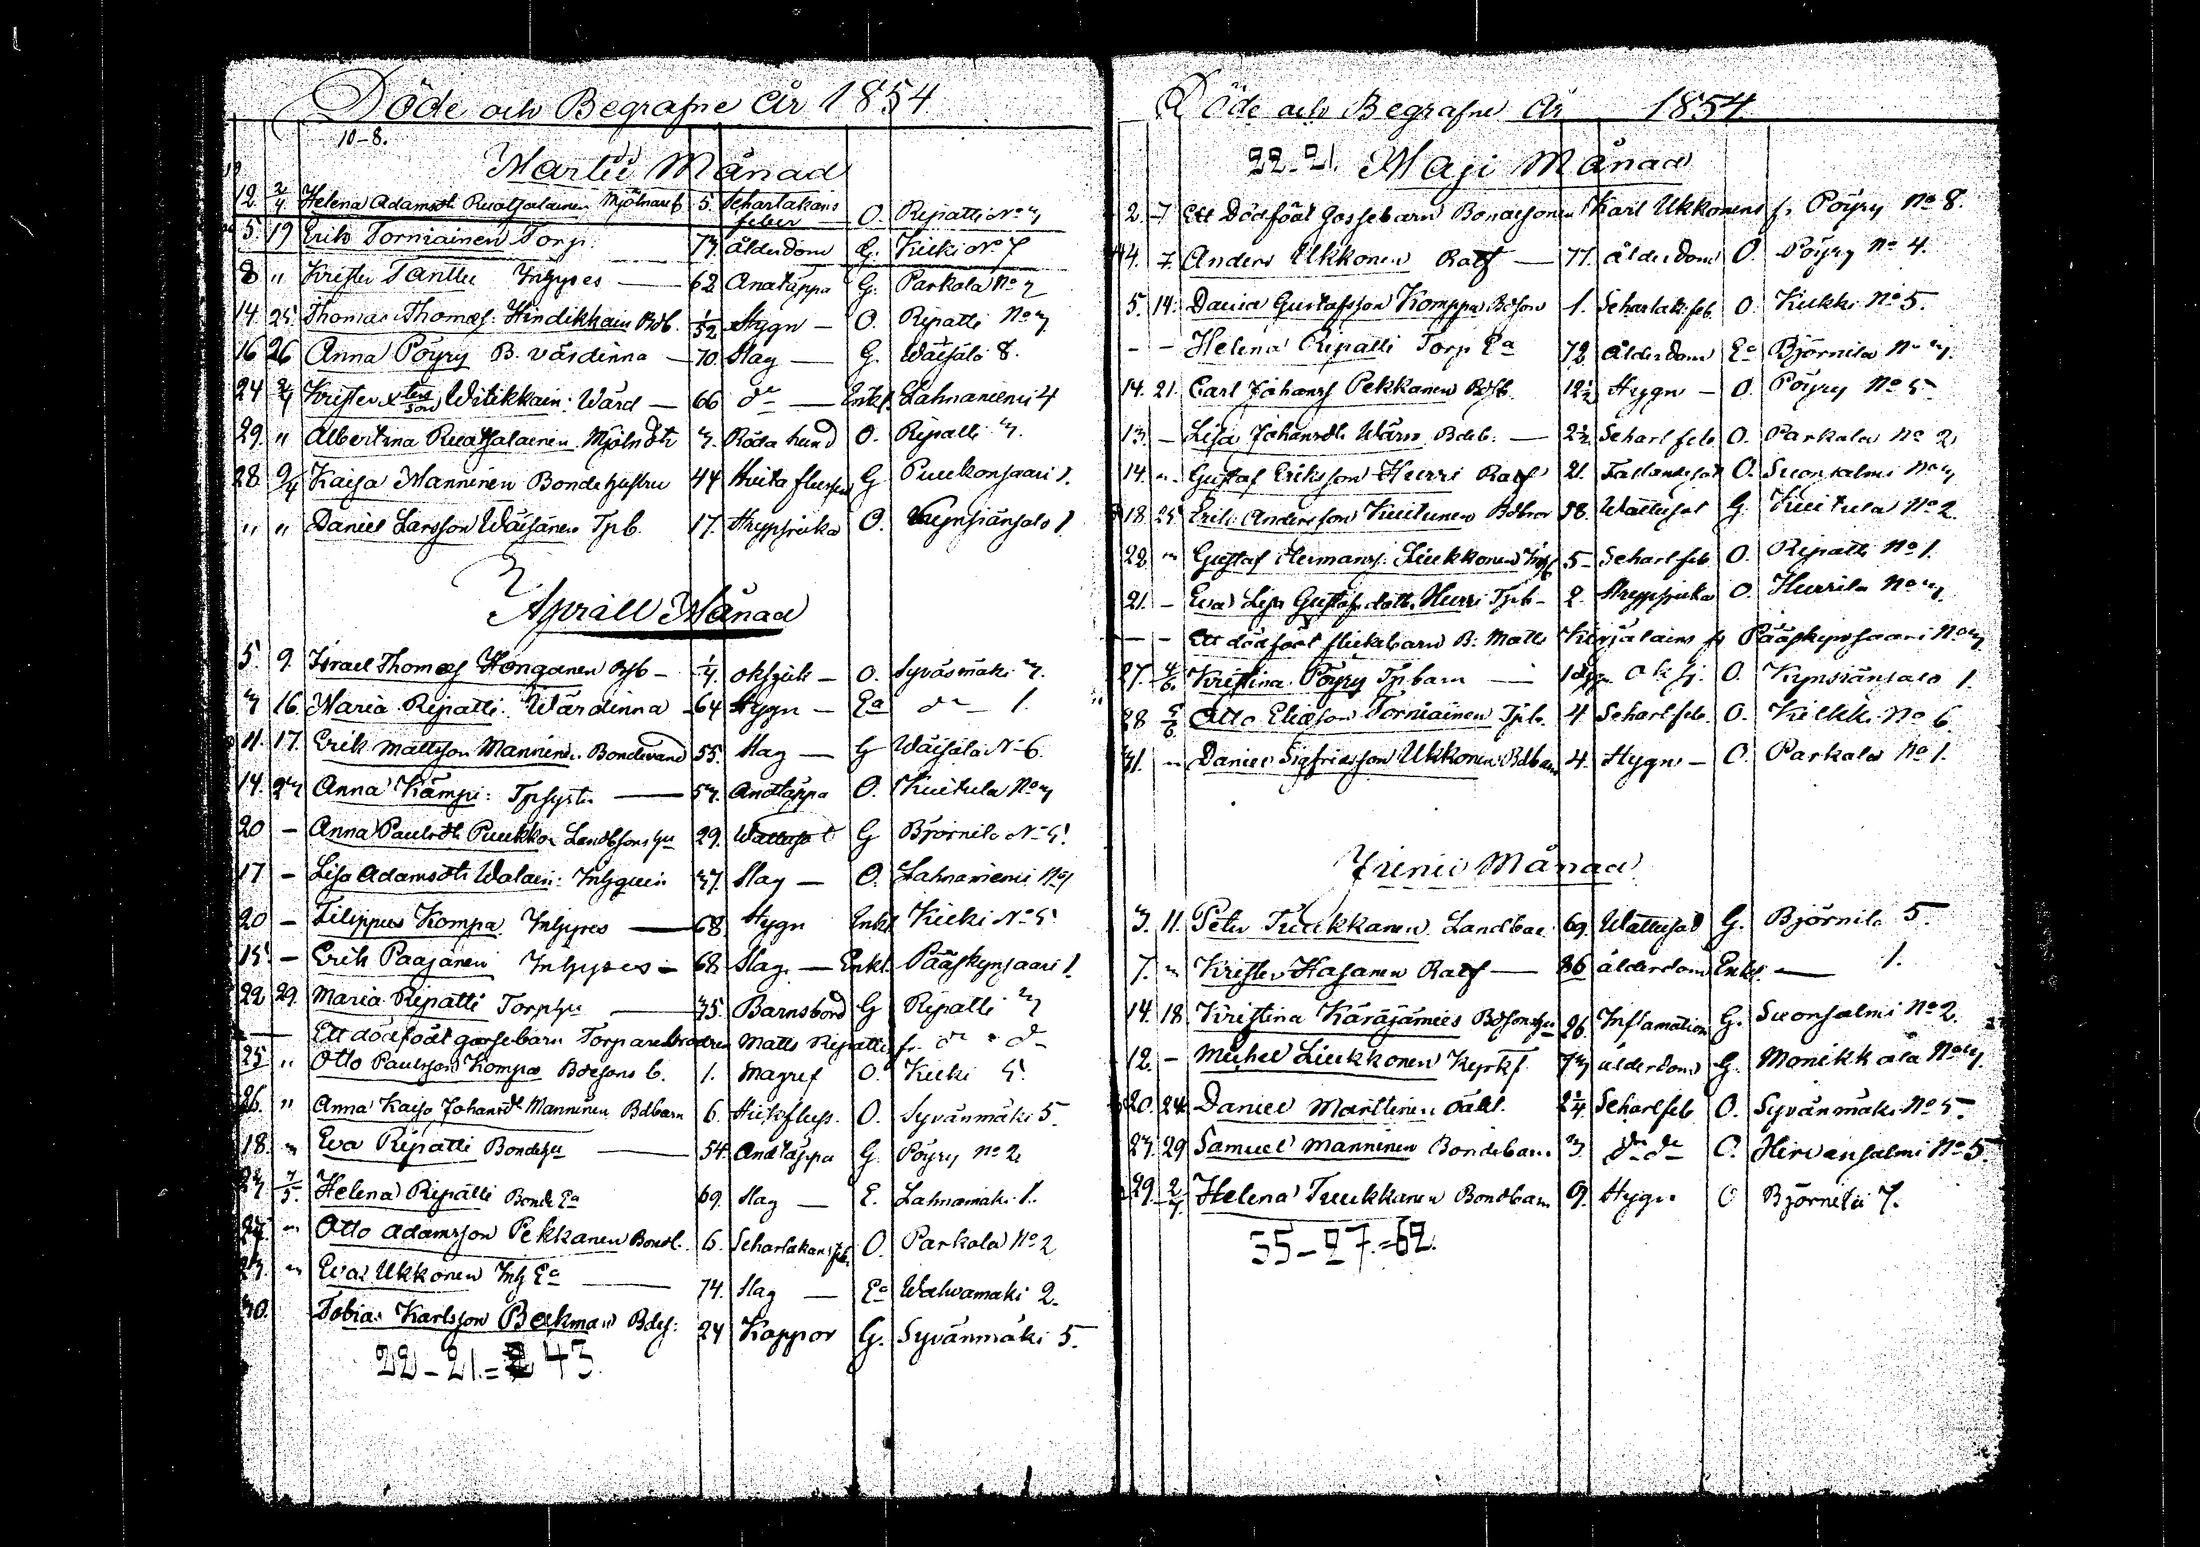 Döde och Begrafne År 1854
10-8.
Martii Månad
12. 2/4 Helena Adamsdtr Ruotsalainen Mjölnareb 5. Scharlakans feber O. Ripatti No 3
5. 19 Erik Torniainen Torp. 73. ålderdom G. Kukki No 7
8 " Krister Tanttu Inhyses — 62 Andtäppa G. Parkala No 2
14. 25. Thomas Thomass. Hindikkain Bdb. 1/52 Hygn — O. Ripatti No 3
16 26 Anna Pöyry B. värdinna — 70. Slag — G. Wäisälä 8.
24 2/4 Krister Xterssson Witikkain: Wärd — 66 do — Enkl. Lahnaniemi 4
29. " Albertina Ruotsalainen Mjöln dtr 3. Röda hund O. Ripatti 3.
28. 9/4 Kaisa Manninen Bondehustru 44 G Puukonsaari 1.
" " Daniel Larsson Wäisänen Tpb. 17. Strypsjuka O. Kynsiänsalo 1
Aprill Månad
5. 9. Israel Thomass Honganen Bsb — 1/4. oksjuk — O. Syväsmäki 3.
3 16. Maria Ripatti. Wärdinna — 64 Hygn — Ea do — 1.
11. 17. Erik Mattsson Manninen. Bondewärd 55. Slag — G Wäisälä No 6.
14. 23 Anna Kämpi: Tpsyster — 53. Andtäppa O. Kuitula No 3
20 — Anna Paulsdtr Puukko Landbsonshu 29. Wattusot G Björnilä No 5.
17 — Lisa Adamsdtr Walain: Inhqvin 37. Slag — O. Lahnaniemi No 1
20 — Filippus Kompa Inhyses — 68 Hygn Enkl Kukki No 5.
15. — Erik Paajanen Inhyses — 68. Slag. — Enkl. Pääskynsaari 1.
22 29. Maria Ripatti Torphu — 35. Barnsbörd G Ripatti 3
— Ett dödfödt gossebarn Torparebrodren Matts Ripattis fr. do " do
25 " Otto Paulsson Kompa Bdesons b. 1. Magref O. Kukki 5.
26. " Anna Kaisa Johansdtr Manninen Bdbarn 6. O. Syvänmäki 5.
18. " Eva Ripatti Bondehu — 54. Andtäppa G. Pöyry No 2
23. 7/5. Helena Ripatti Bonde Ea 69. Slag — E. Lahnamäki 1.
24. " Otto Adamsson Pekkanen Bondb. 6. Scharlakansfeb. O. Parkala No 2
23. " Eva Ukkonen Inh Ea — 74. Slag — Ea Walvamäki 2.
30. Tobias Karlsson Backman Bdes: 24 Koppor G. Syvänmäki 5.
22-21.= 43.
Döde och Begrafne År 1854
22-21. Maji Månad
2. 7 Ett Dödfödt Gossebarn Bondesonen Karl Ukkonens fr. Pöyry No 8.
4. 7. Anders Ukkonen Rotf — 77. ålderdom O. Pöyry No 4.
5. 14. David Gustafsson Komppa Bdeson 1. Scharlak.feb. O. Kukki No 5.
- - Helena Ripatti Torp Ea 72 ålderdom Ea Björnilä No 3.
14. 21. Carl Johanss Pekkanen Bdsb. 12 1/2 Hygn — O. Pöyry No 5
13. — Lisa Johansdtr Wärn Bdeb. — 2 1/2 Scharl feb O. Parkala No 2
14. " Gustaf Eriksson Hurri Rotf 21. Fallandesot O. Suonsalmi No 3
18. 25. Erik Andersson Kuitunen Bdbror 38. Wattusot G. Kuitula No 2.
22 " Gustaf Hermanss. Liukkonen 5- Scharl feb O. Ripatti No 1.
21. — Eva Lisa Gustafsdotter Hurri Tpb- 2. Strypsjuka O. Hurrila No 3.
— — Ett dödfödt flickebarn B. Matts Karjalains fr Pääskynsaari No 3
27. 4/6. Kristina Pöyry Tpbarn — Ok sj. O. Kynsiänsalo 1.
28 5/6 Otto Eliasson Torniainen Tpb. 4 Scharl feb. O. Kukki No 6
31. " Daniel Sigfridsson Ukkonen Bdbarn 4. Hygn — O. Parkala No 1.
Junii Månad
3. 11. Peter Tuukkanen Landbon 69. Wattusot G. Björnilä 5.
7. " Krister Hasanen Rotf — 86 ålderdom Enkl. — 1.
14. 18. Kristina Käräjämies Bdsonshu 26. Inflamation G. Suonsalmi No 2.
12. — Michel Liukkonen Kyrkf. 73 ålderdom G. Monikkala No 3.
20. 24. Daniel Marttinen oäkt. 2 1/4 Scharl feb O. Syvänmäki No 5.
23. 29 Samuel Manninen Bondebarn 3 do do O. Hirvensalmi No 5.
29. 2/7 Helena Tuukkanen Bondbarn 9. Hygn O Björnilä 7.
35-27.=62.